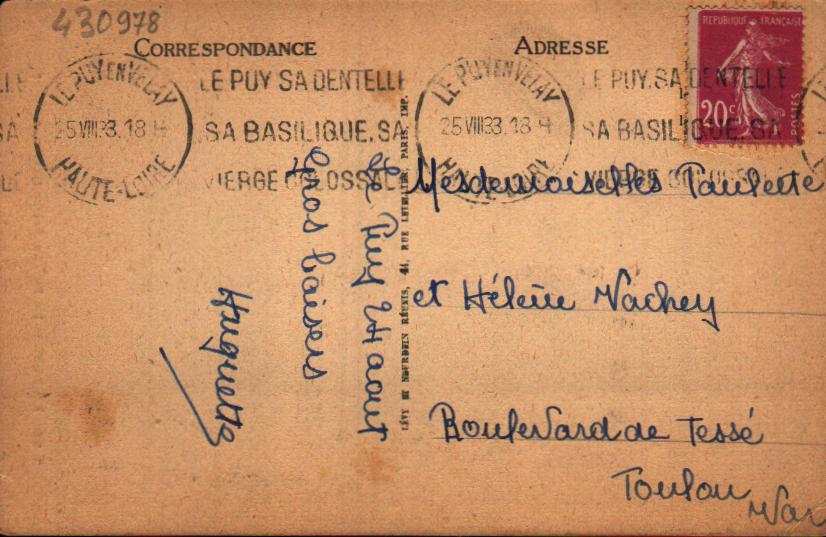 430978
CORRESPONDANCE
ADRESSE
REPUBLIQUE FRANÇAISE
20c
POSTES
LE PUY EN VELAY
25 VIII 33. 18 H
HAUTE-LOIRE
LE PUY SA DENTELLE
SA BASILIQUE. SA
VIERGE COLOSSALE
LE PUY EN VELAY
25 VIII 33. 18 H
HAUTE-LOIRE
LE PUY. SA DENTELLE
SA BASILIQUE. SA
Le Puy 24 aout
Gros baisers
Huguette
LÉVY ET NEURDEIN RÉUNIS, 44, RUE LETELLIER, PARIS, IMP.
Mesdemoiselles Paulette
et Hélène Vachey
Boulevard de Tessé
Toulon
Var